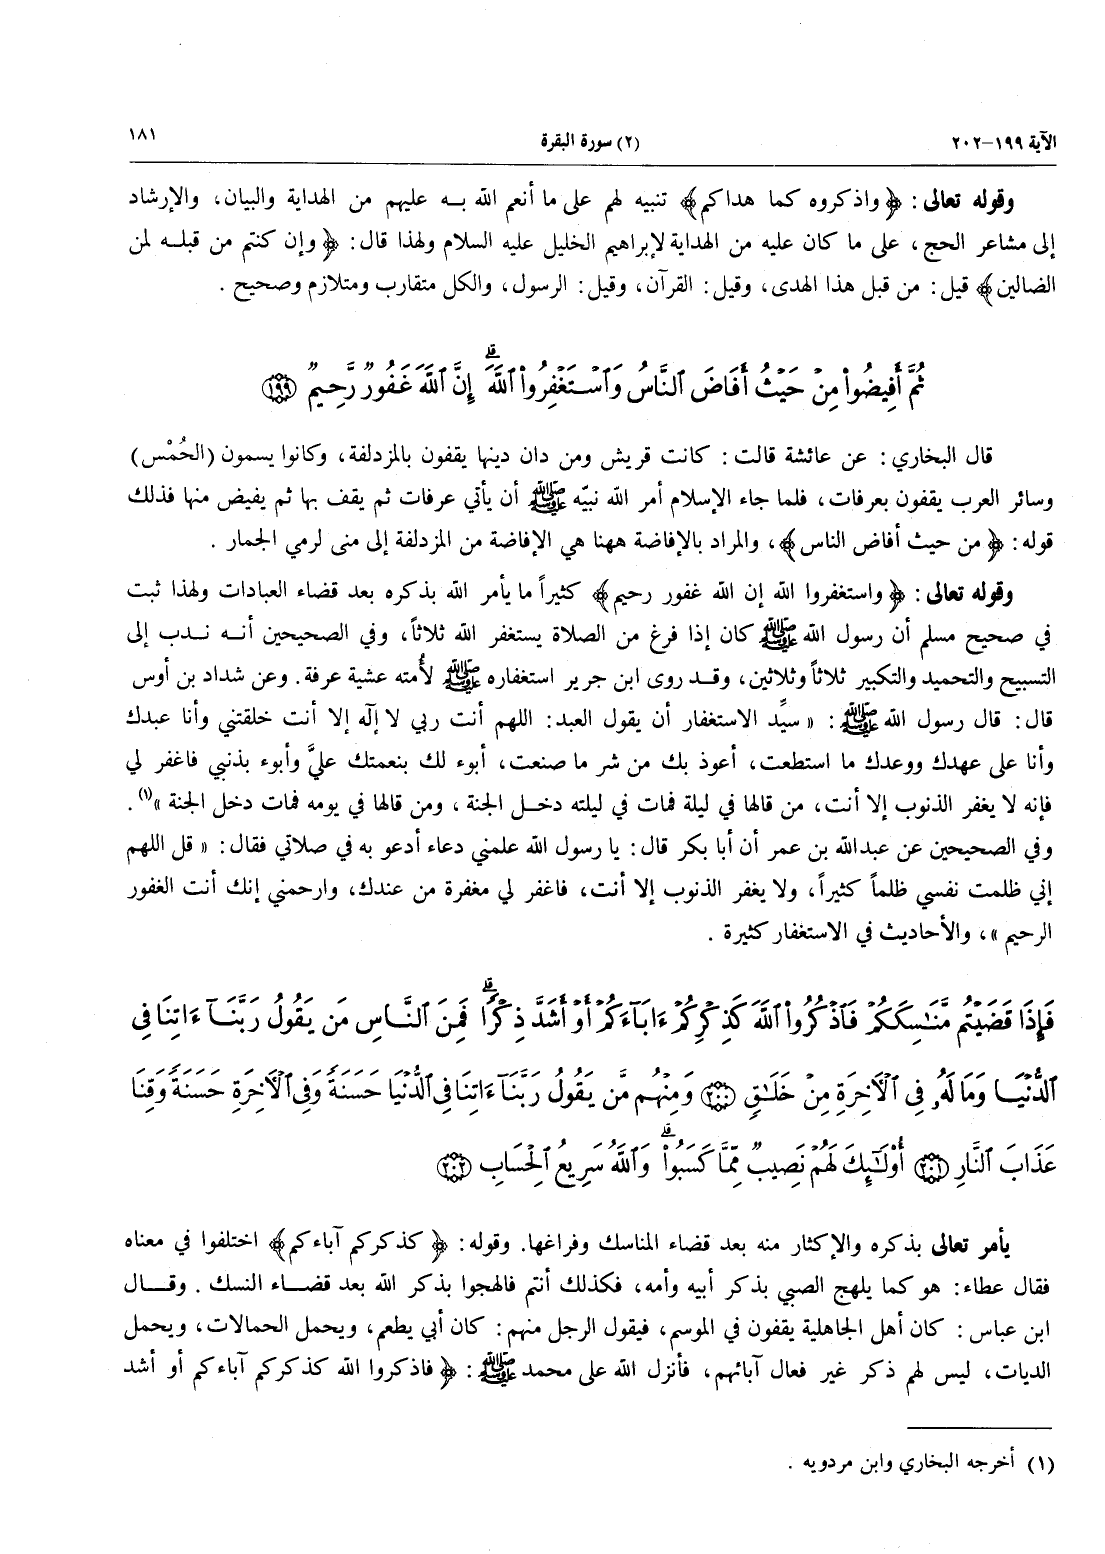 الآية ١٩٩-٢٠٢ (٢) سورة البقرة ١٨١
وقوله تعالى: ﴿واذكروه كما هداكم﴾ تنبيه لهم على ما أنعم الله به عليهم من الهداية والبيان، والإرشاد
إلى مشاعر الحج، على ما كان عليه من الهداية لإبراهيم الخليل عليه السلام ولهذا قال: ﴿وإن كنتم من قبله لمن
الضالين﴾ قيل: من قبل هذا الهدى، وقيل: القرآن، وقيل: الرسول، والكل متقارب ومتلازم وصحيح.
ثُمَّ أَفِيضُوا۟ مِنْ حَيْثُ أَفَاضَ ٱلنَّاسُ وَٱسْتَغْفِرُوا۟ ٱللَّهَ ۗ إِنَّ ٱللَّهَ غَفُورٌ رَّحِيمٌ ١٩٩
قال البخاري: عن عائشة قالت: كانت قريش ومن دان دينها يقفون بالمزدلفة، وكانوا يسمون (الحُمْس)
وسائر العرب يقفون بعرفات، فلما جاء الإسلام أمر الله نبيّه ﷺ أن يأتي عرفات ثم يقف بها ثم يفيض منها فذلك
قوله: ﴿من حيث أفاض الناس﴾، والمراد بالإفاضة ههنا هي الإفاضة من المزدلفة إلى منى لرمي الجمار.
وقوله تعالى: ﴿واستغفروا الله إن الله غفور رحيم﴾ كثيراً ما يأمر الله بذكره بعد قضاء العبادات ولهذا ثبت
في صحيح مسلم أن رسول الله ﷺ كان إذا فرغ من الصلاة يستغفر الله ثلاثاً، وفي الصحيحين أنه ندب إلى
التسبيح والتحميد والتكبير ثلاثاً وثلاثين، وقد روى ابن جرير استغفاره ﷺ لأُمته عشية عرفة. وعن شداد بن أوس
قال: قال رسول الله ﷺ: «سيِّد الاستغفار أن يقول العبد: اللهم أنت ربي لا إلٓه إلا أنت خلقتني وأنا عبدك
وأنا على عهدك ووعدك ما استطعت، أعوذ بك من شر ما صنعت، أبوء لك بنعمتك عليَّ وأبوء بذنبي فاغفر لي
فإنه لا يغفر الذنوب إلا أنت، من قالها في ليلة فمات في ليلته دخل الجنة، ومن قالها في يومه فمات دخل الجنة»(١).
وفي الصحيحين عن عبدالله بن عمر أن أبا بكر قال: يا رسول الله علمني دعاء أدعو به في صلاتي فقال: «قل اللهم
إني ظلمت نفسي ظلماً كثيراً، ولا يغفر الذنوب إلا أنت، فاغفر لي مغفرة من عندك، وارحمني إنك أنت الغفور
الرحيم»، والأحاديث في الاستغفار كثيرة.
فَإِذَا قَضَيْتُم مَّنَـٰسِكَكُمْ فَٱذْكُرُوا۟ ٱللَّهَ كَذِكْرِكُمْ ءَابَآءَكُمْ أَوْ أَشَدَّ ذِكْرًا ۗ فَمِنَ ٱلنَّاسِ مَن يَقُولُ رَبَّنَآ ءَاتِنَا فِى
ٱلدُّنْيَا وَمَا لَهُۥ فِى ٱلْآخِرَةِ مِنْ خَلَـٰقٍ ٢٠٠ وَمِنْهُم مَّن يَقُولُ رَبَّنَآ ءَاتِنَا فِى ٱلدُّنْيَا حَسَنَةً وَفِى ٱلْآخِرَةِ حَسَنَةً وَقِنَا
عَذَابَ ٱلنَّارِ ٢٠١ أُو۟لَـٰٓئِكَ لَهُمْ نَصِيبٌ مِّمَّا كَسَبُوا۟ ۚ وَٱللَّهُ سَرِيعُ ٱلْحِسَابِ ٢٠٢
يأمر تعالى بذكره والإكثار منه بعد قضاء المناسك وفراغها. وقوله: ﴿كذكركم آباءكم﴾ اختلفوا في معناه
فقال عطاء: هو كما يلهج الصبي بذكر أبيه وأمه، فكذلك أنتم فالهجوا بذكر الله بعد قضاء النسك. وقال
ابن عباس: كان أهل الجاهلية يقفون في الموسم، فيقول الرجل منهم: كان أبي يطعم، ويحمل الحمالات، ويحمل
الديات، ليس لهم ذكر غير فعال آبائهم، فأنزل الله على محمد ﷺ: ﴿فاذكروا الله كذكركم آباءكم أو أشد
(١) أخرجه البخاري وابن مردويه.